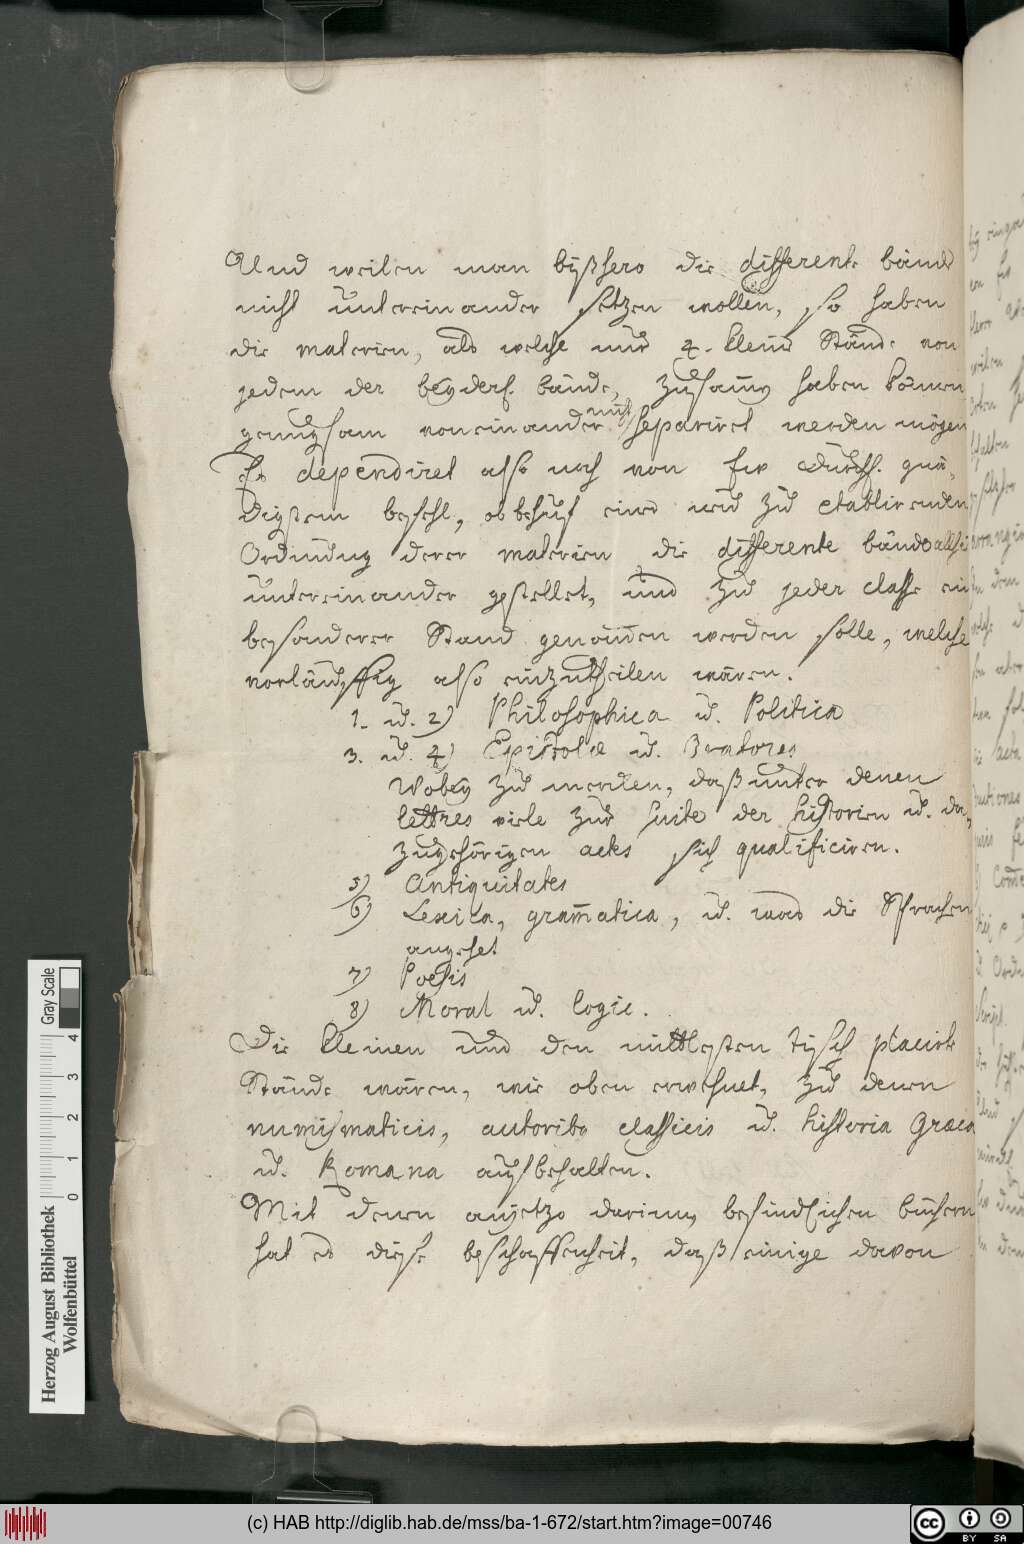 Und weilen man bißhero die differente bände
nicht untereinander setzen wollen, so haben
die materien, als welche nur 4. kleine Stände von
jedem der beyders. bände, zusamen haben können
genugsam voneinander nicht separiret werden mögen
Es dependiret also noch von Ew Durchl. gnä-
digstem befehl, ob behuef einer neu zu etablirenden
Ordnung derer materien die differente bände alhie
untereinander gestellet, und zu jeder classe ein
besonderer Stand genomen werden solle, welche
vorläuffig also einzutheilen wären.
1. u. 2) Philosophica u. Politica
3. u. 4) Epistolæ u. Oratores
Wobey zu mercken, daß unter denen
lettres viele zur suite der historien u. da-
zugehörigen actes sich qualificiren.
5) Antiquitates
6) Lexica, gramatica, u. was die Sprachen
angehet
7) Poesis
8) Moral u. Logic.
Die kleinen und den mittlesten tisch placirte
Stände wären, wie oben erwehnet, zu denen
numismaticis, autoribus classicis u. historia Græca
u. Romana aufbehalten.
Mit denen anjetzo darinn befindlichen büchern
hat es diese beschaffenheit, daß einige davon
Herzog August Bibliothek
Wolfenbüttel
0 1 2 3 4
Gray Scale
(c) HAB http://diglib.hab.de/mss/ba-1-672/start.htm?image=00746
cc BY SA